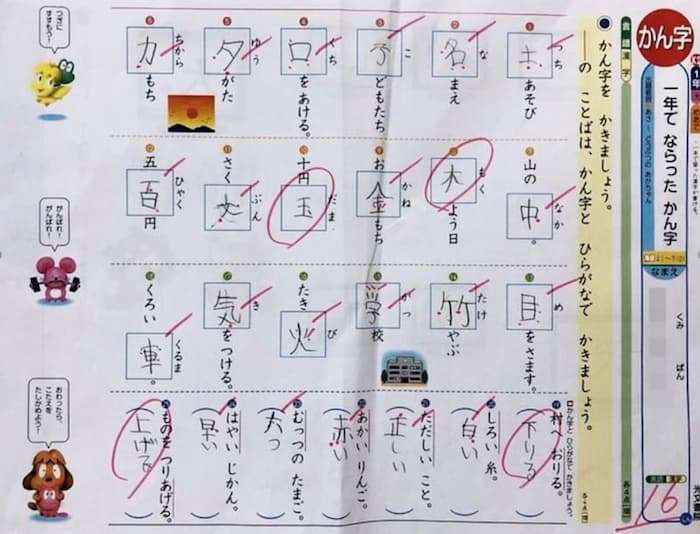 かん字
一年で ならった かん字
なまえ
くみ
ばん
16
かん字を かきましょう。
――の ことばは、かん字と ひらがなで かきましょう。
各4点
① 土 つち あそび
② 名 な まえ
③ 子 こ どもたち
④ 口 くち をあける。
⑤ 夕 ゆう がた
⑥ 力 ちから もち
⑦ 山の 中 なか 。
⑧ 木 もく よう日
⑨ お 金 かね もち
⑩ 十円 玉 だま
⑪ さく 文 ぶん
⑫ 五 百 ひゃく 円
⑬ 目 め をさます。
⑭ 竹 たけ やぶ
⑮ 学 がっ 校
⑯ たき 火 び
⑰ 気 き をつける。
⑱ くろい 車 くるま 。
かん字と ひらがなで かきましょう。
各4点
⑲ 村へ おりる。 (下りる)
⑳ しろい 糸。 (白い)
㉑ ただしい こと。 (正しい)
㉒ あかい りんご。 (赤い)
㉓ むっつの たまご。 (六つ)
㉔ はやい じかん。 (早い)
㉕ ものを つりあげる。 (上げる)
つぎに すすもう!
がんばれ! がんばれ!
おわったら、 こたえを たしかめよう!